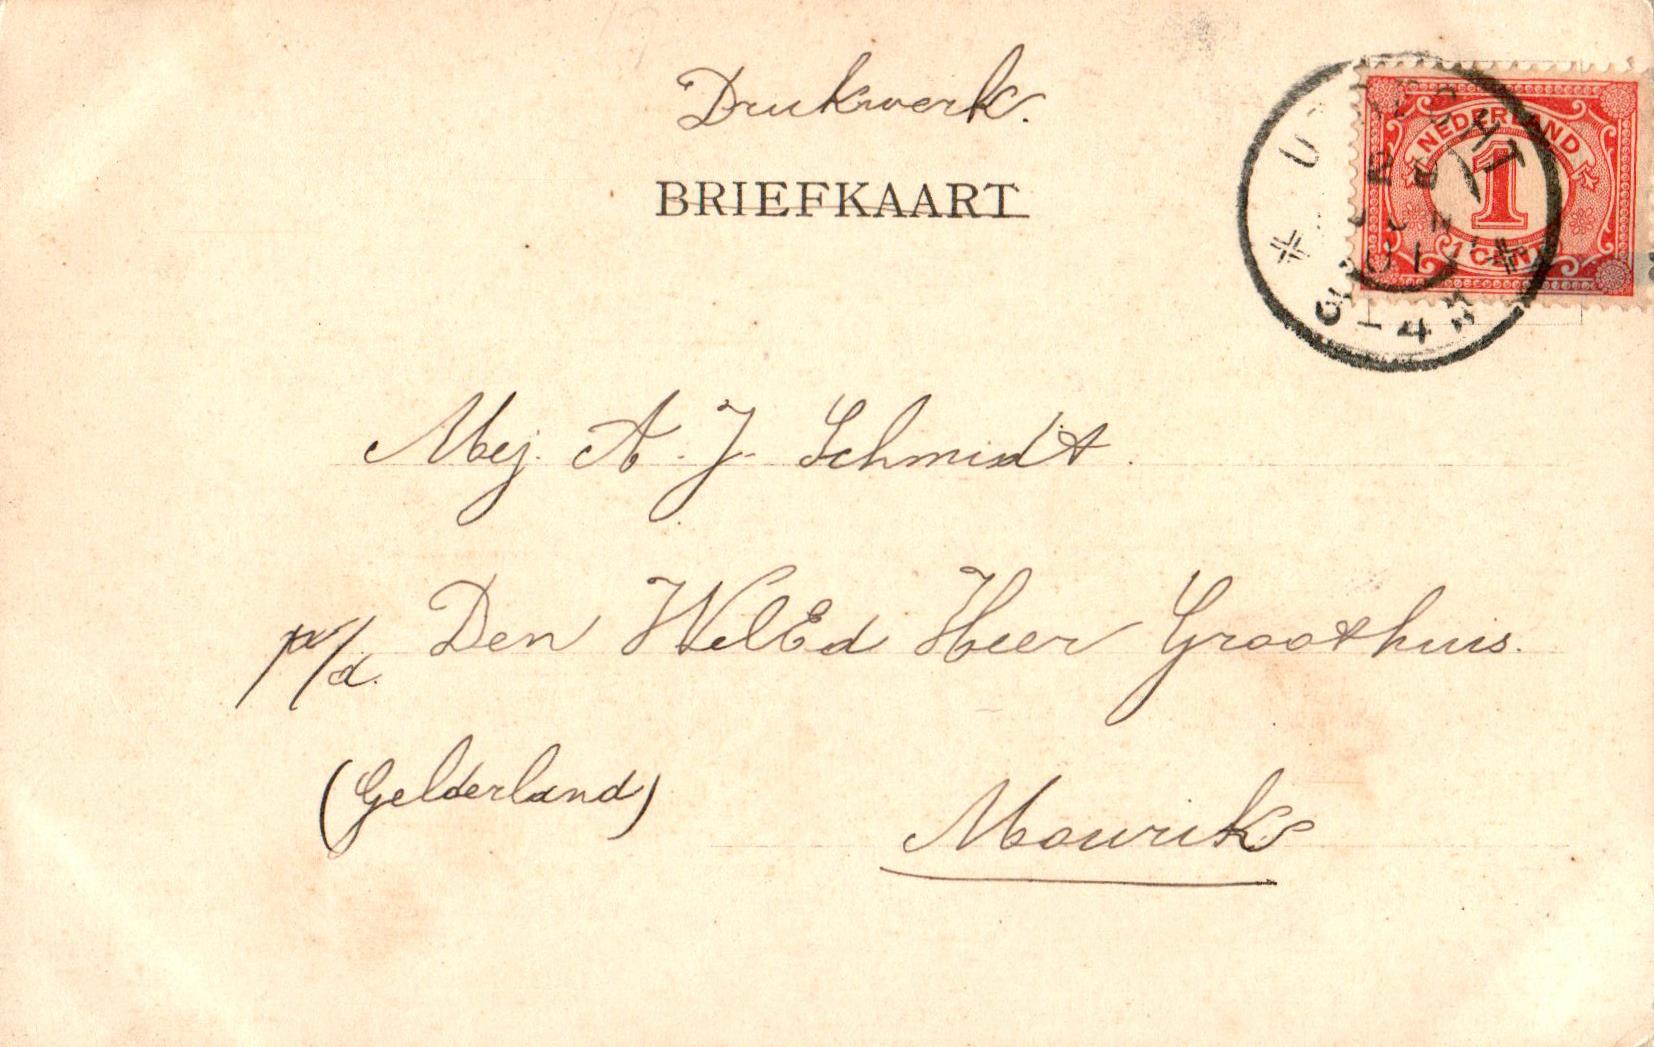 Drukwerk.
BRIEFKAART
NEDERLAND
1
1 CENT
UTRECHT
JUN
01
3-4
Mej. A. J. Schmidt.
p/a. Den WelEd Heer Groothuis.
(Gelderland)
Mourik